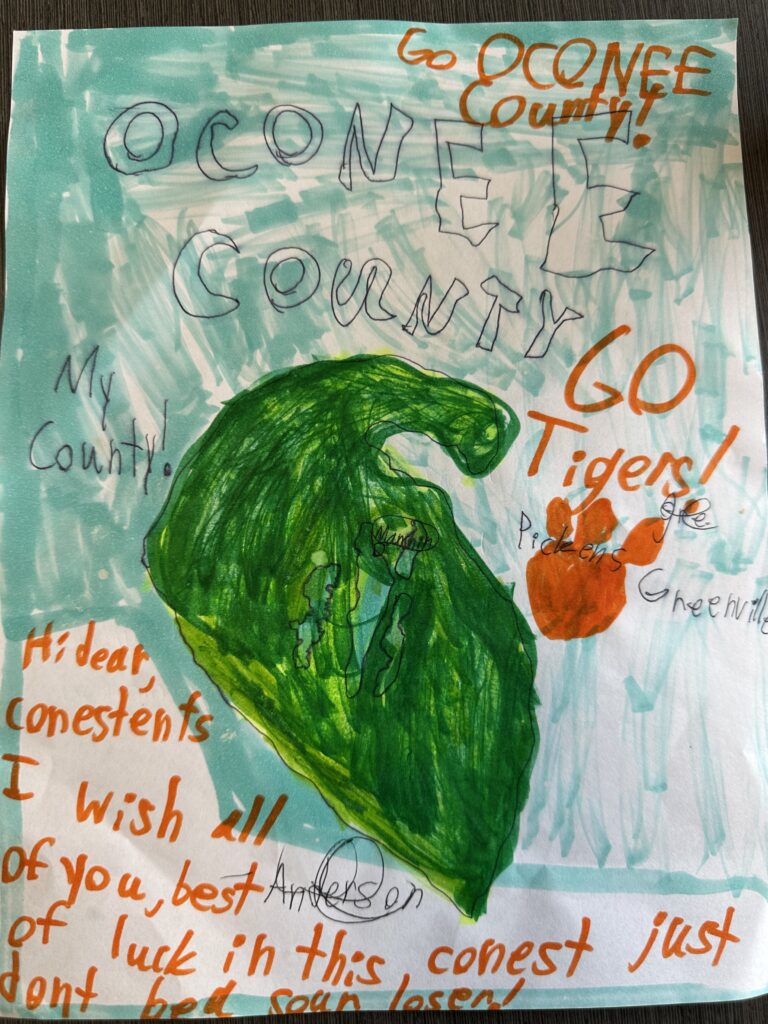 Go OCONEE
County!
OCONEE
COUNTY
My
County!
GO
Tigers!
Pickens
Greenville
Hi dear,
conestents
I wish all
of you, best
Anderson
of luck in this, conest just
dont bea sour loser!